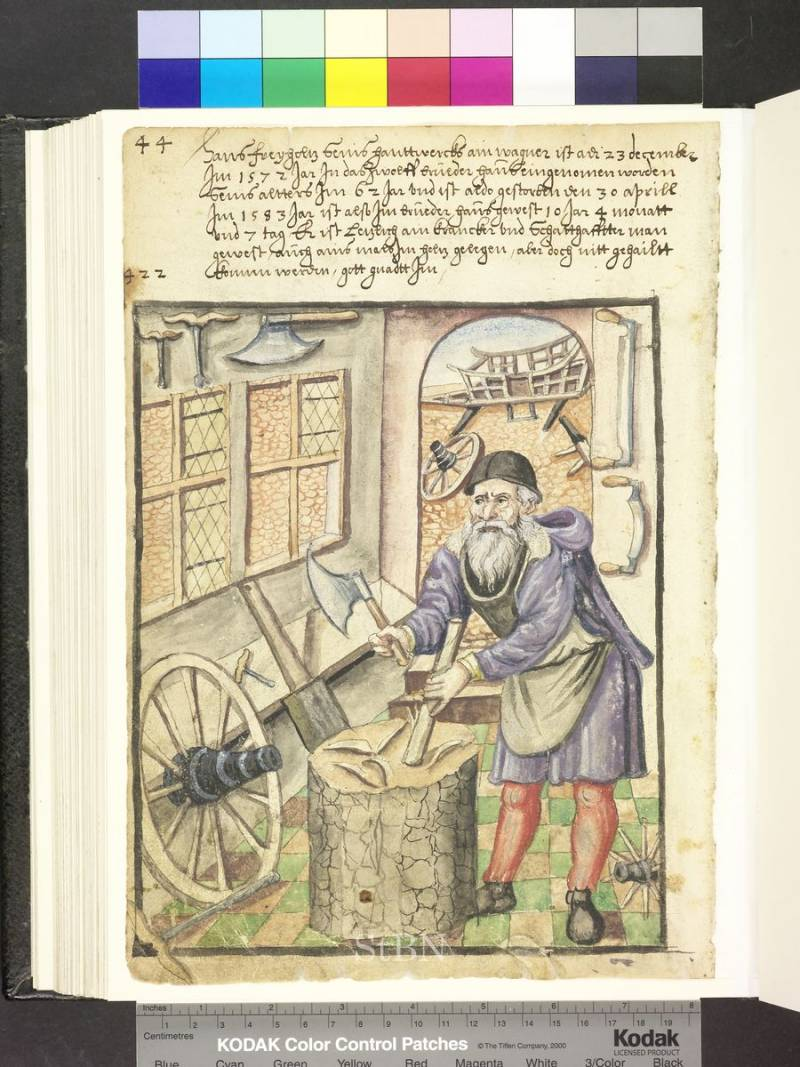 44
Hanns Freyholtz seins hanttwercks ain wagner ist adi 23 december
Im 1572 Jar In das zwolff brüeder hauß eingenomen worden
seins altters Im 62 Jar vnd ist aldo gestorben den 30 aprill
Im 1583 Jar ist also Im brüeder hauß gewest 10 Jar 4 monatt
vnd 7 tag Er ist ain krancker vnd schatthaffter man
gewest auch ains mals Im holtz gelegen, aber doch nitt gehailtt
422 komen werden, gott gnadtt Im
StBN
Inches 1 2 3 4 5 6 7 8
Centimetres 1 2 3 4 5 6 7 8 9 10 11 12 13 14 15 16 17 18 19
KODAK Color Control Patches © The Tiffen Company, 2000 Kodak
LICENSED PRODUCT
Blue Cyan Green Yellow Red Magenta White 3/Color Black